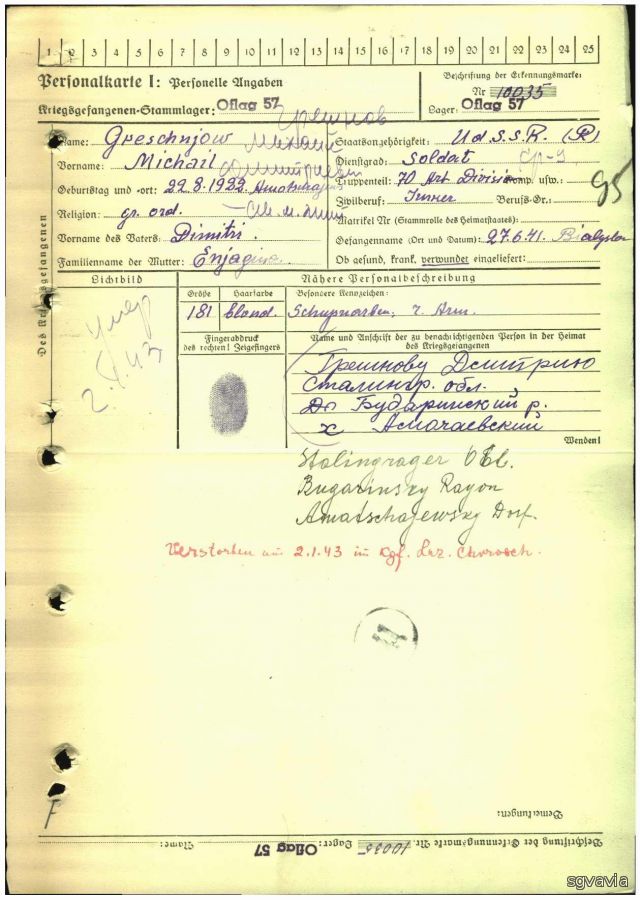 1 2 3 4 5 6 7 8 9 10 11 12 13 14 15 16 17 18 19 20 21 22 23 24 25
Personalkarte I: Personelle Angaben
Beschriftung der Erkennungsmarke:
Nr 10035
Kriegsgefangenen-Stammlager: Oflag 57
Lager: Oflag 57
Грешнов
Name: Greschnjow
Михаил
Staatsangehörigkeit: U d S.S.R. (R)
Vorname: Michail
Дмитриевич
Dienstgrad: Soldat
Geburtstag und -ort: 22.8.1922
Truppenteil: 70 Art Division usw.
95
Religion: gr. ord.
Zivilberuf: Berufs-Gr.:
Matrikel Nr (Stammrolle des Heimatstaates):
Vorname des Vaters: Dimitri.
Gefangenname (Ort und Datum): 27.6.41. Bialystok
Familienname der Mutter: Enjagina.
Ob gesund, krank, verwundet eingeliefert:
Des Kriegsgefangenen
Lichtbild
Nähere Personalbeschreibung
Größe
Haarfarbe
Besondere Kennzeichen:
181
blond.
r. Arm.
умер
2.I.43
Fingerabdruck
des rechten! Zeigefingers
Name und Anschrift der zu benachrichtigenden Person in der Heimat
des Kriegsgefangenen
Грешнову Дмитрию
Сталингр. обл.
Бударинский р.
х Амочаевский
Wenden!
Stalingrager Obl.
Bugarinsky Rayon
Amatschajewsky Dorf.
Verstorben am 2.1.43 im Kgf. Laz. Chorosch.
Bemerkungen:
Beschriftung der Erkennungsmarke Nr. 10035 Lager: Oflag 57 Name:
sgvavia